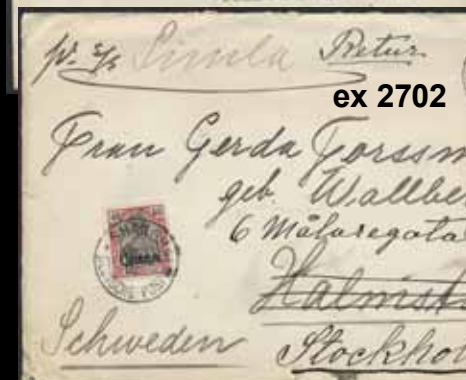 pr. s/s Simla Retur
ex 2702
Frau Gerda Forssm
geb. Wallbe
6 Målaregata
Halmst
Schweden Stockhol